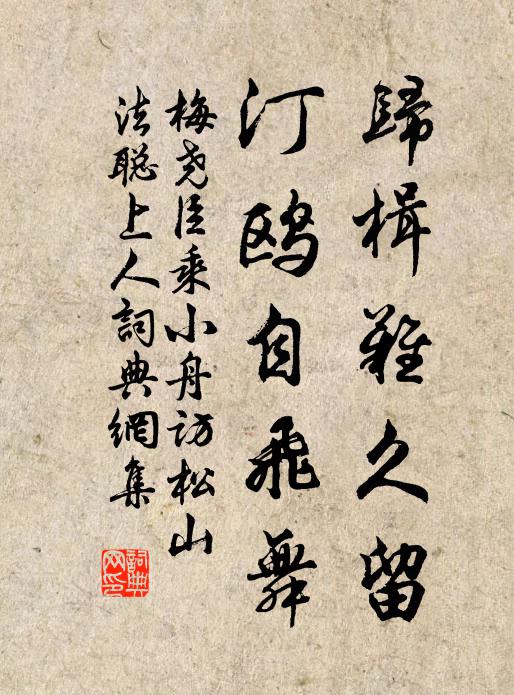 歸楫難久留
汀鷗自飛舞
梅尧臣乘小舟訪松山
法聪上人詞典網集
詞典网印